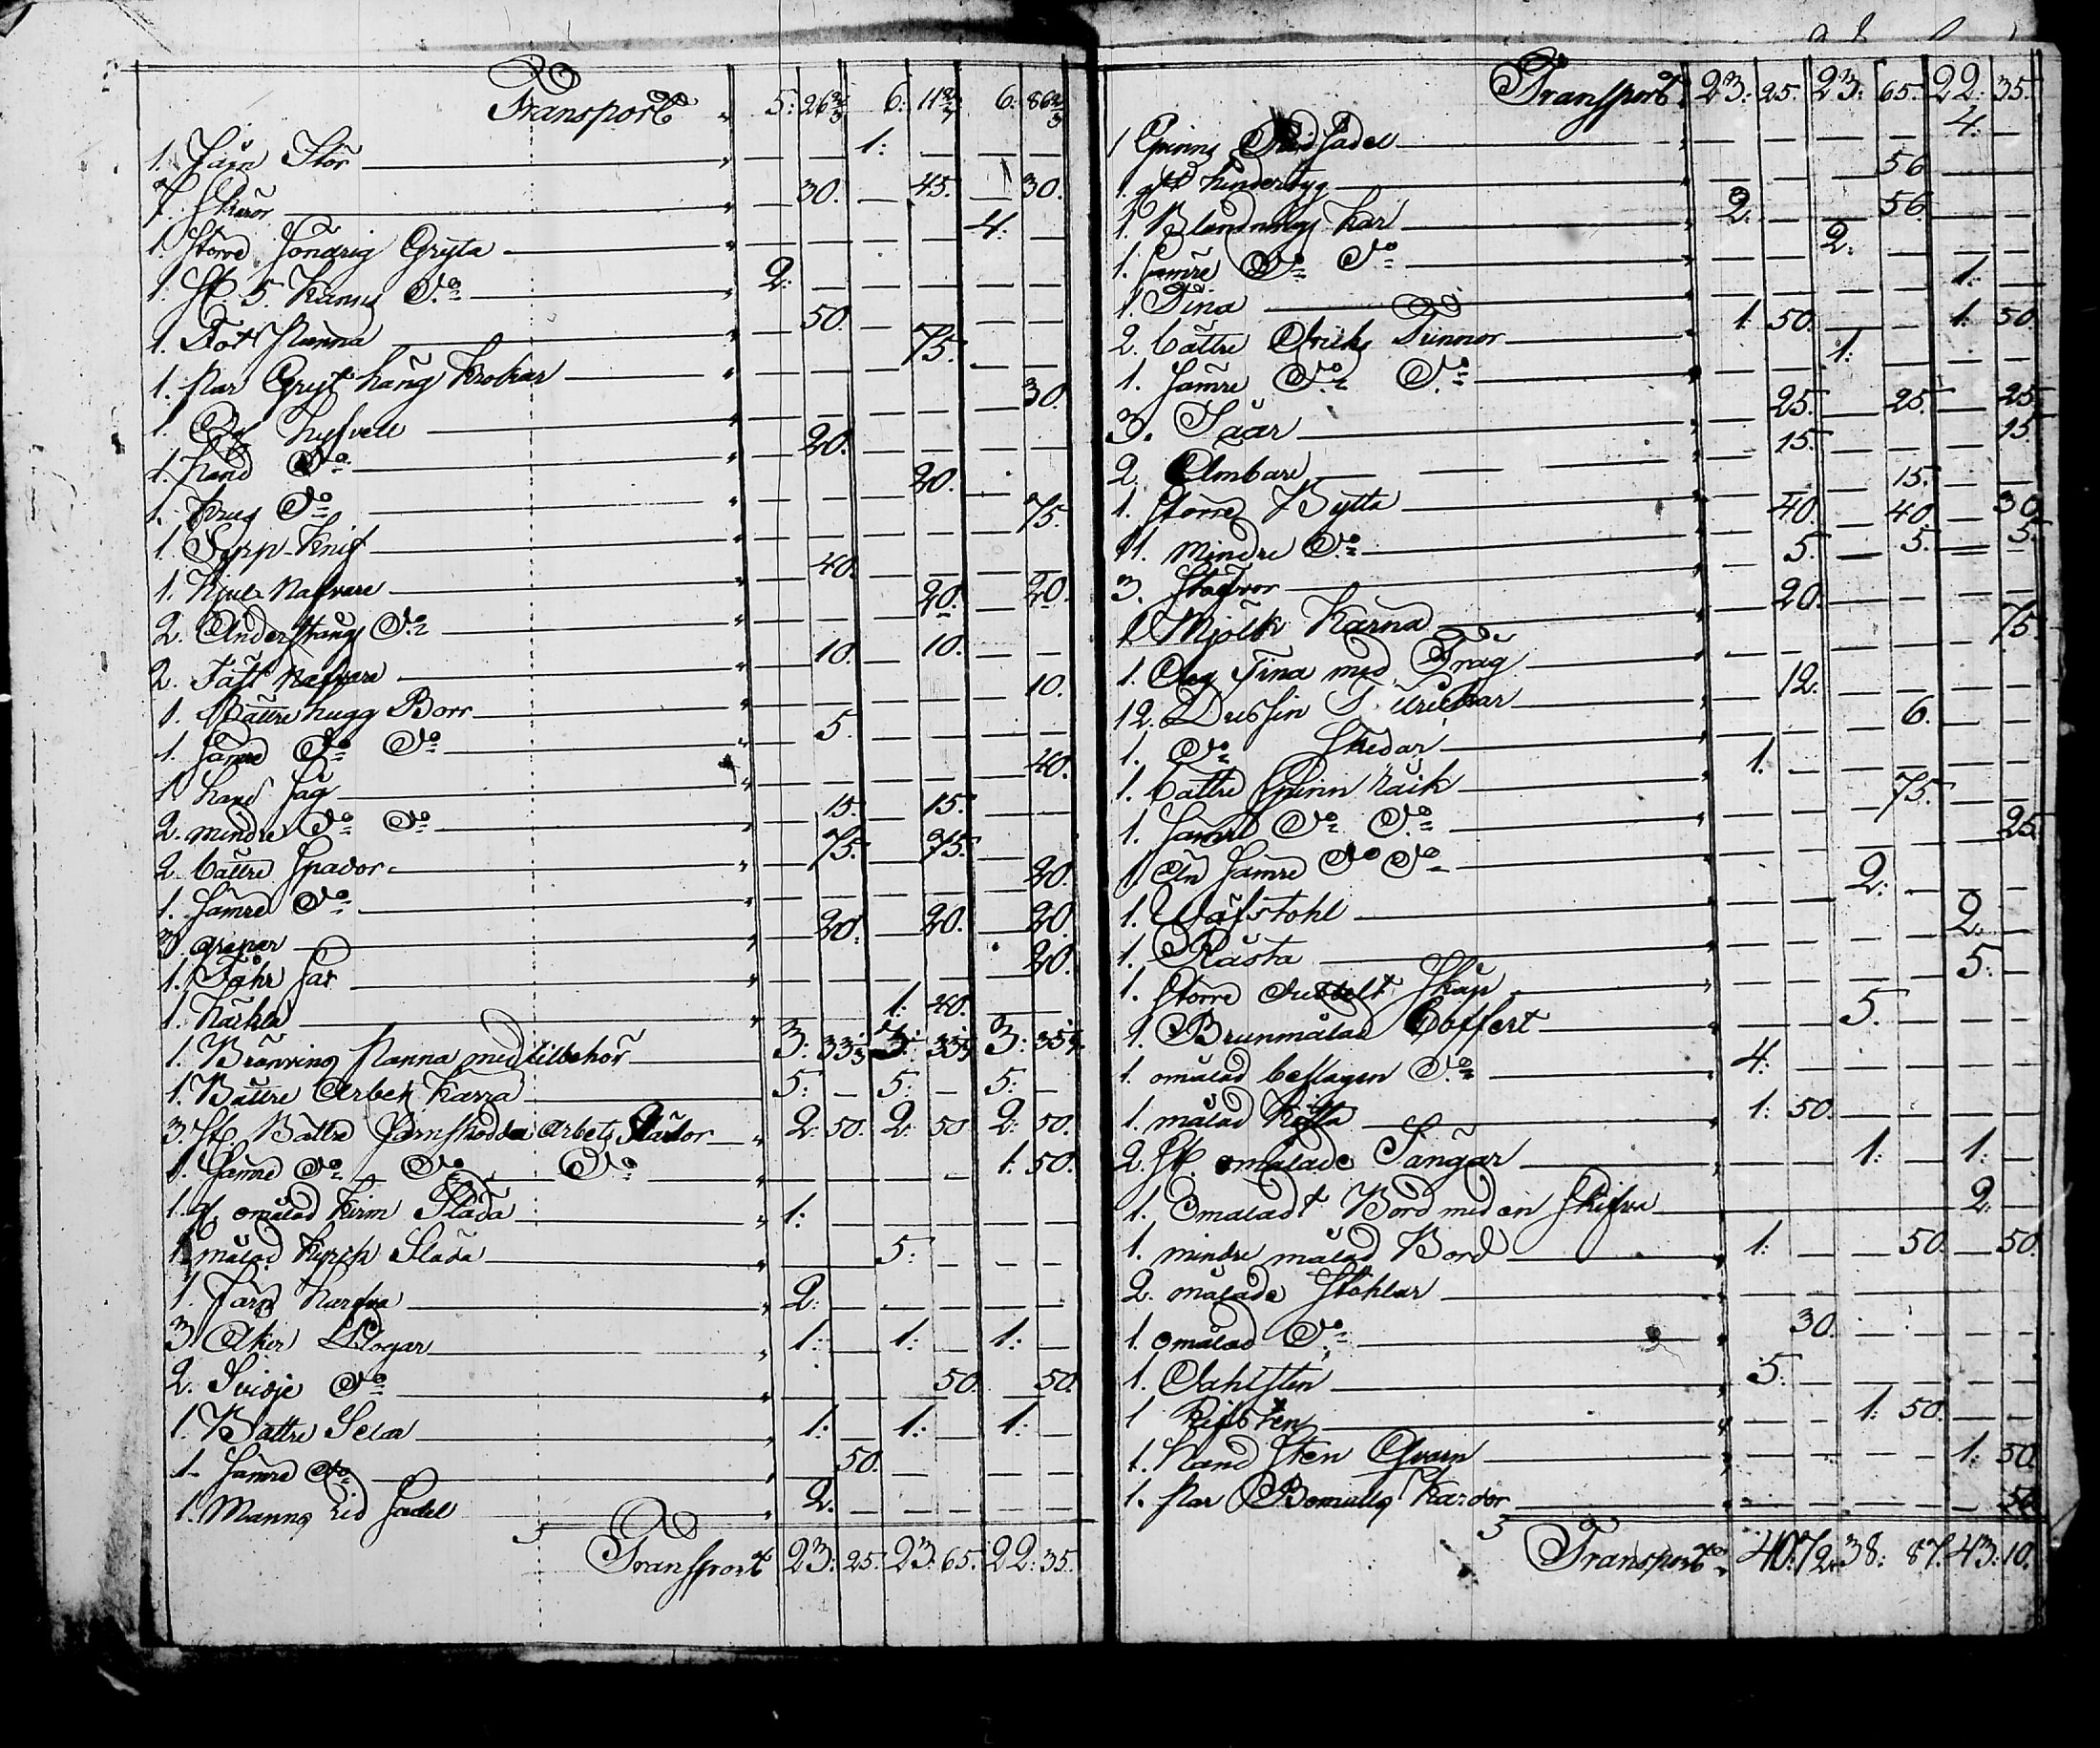 Transport 5: 26 2/3 6: 11 2/3 6: 86 2/3
1. Järn Stör — 1:
7. Skäror 30. 45. 30.
1. Större Söndrig Gryta 4:
1. St. 5. Kanns D:o 2:
1. Fot Panna 50.
1. Par Gryt häng Krokar 75.
1. Hyfvell 30.
1. Hand D:o 20.
1. D:o 20.
1. Knif 75.
1. Hjul Nafvare 40.
2. Anderstangs D:o 20. 20.
2. Nafvare 10. 10.
1. Bättre hugg Borr 10.
1. Sämre D:o D:o 5.
1. hand Såg 40.
2. mindre D:o D:o 15. 15.
2. bättre Spador 75. 75.
1. Sämre D:o 20.
3. grepar 20. 20. 20.
1. Fåhr Sax 20.
1. Häckla 1: 40.
1. Bränvins Panna med tilbehör 3: 33 1/3 3: 33 1/3 3: 33 1/3
1. Bättre Arbets Kärra 5: 5: 5:
3. St. Bättre Järnskodda arbets Slädor 2: 50. 2: 50 2: 50.
1. Sämre D:o D:o D:o 1: 50.
1. St. omålad Kirm Släda 1:
1. målad Kyrck Släda 5:
1. Järn Harfva 2:
3 Åker Plogar 1: 1: 1:
2. Svidje D:o 50. 50.
1. Bättre Sela 1: 1: 1:
1. Sämre D:o 50.
1. Manns Rid Sadel 2.
Transport 23: 25. 23: 65. 22: 35.
Transport 23: 25. 23: 65. 22: 35.
1 Qvinns Rid Sadel 4.
1. 56
1. Blandnings Kar 2. 56
1. Sämre D:o D:o 2:
1. Tina 1:
2. bättre Tunnor 1: 50. 1: 50
1. Sämre D:o D:o 1:
3. Såar 25. 25. 25
2. Ambare 15. 15
1. Större Bytta 15.
11. Mindre D:o 40. 40 30
3. 5. 5. 5.
1 Mjölk Kärna 20.
1. Tina med Tråg 75.
12. Dussin 12.
1. D:o Skedar 6.
1. bättre Spinn Råck 1.
1. Sämre D:o D:o 75.
1. En Sämre D:o D:o 25.
1. Wäfstohl 2:
1. 2.
1. Större dubbelt Skåp 5:
1. Brunmålad Coffert 5.
1. omålad beslagen D:o 4.
1. målad Kista 1: 50.
2. St. omålade Sängar 1: 1:
1. Omåladt Bord med en Skifva 2:
1. mindre målad Bord 1: 50. 50.
2. målade Stohlar
1. omålad D:o 30.
1. 5.
1 1: 50.
1. Hand Sten Qvarn 1: 50
1. Par Bomulls Kardor 50
Transport 40: 72. 38: 87. 43: 10.